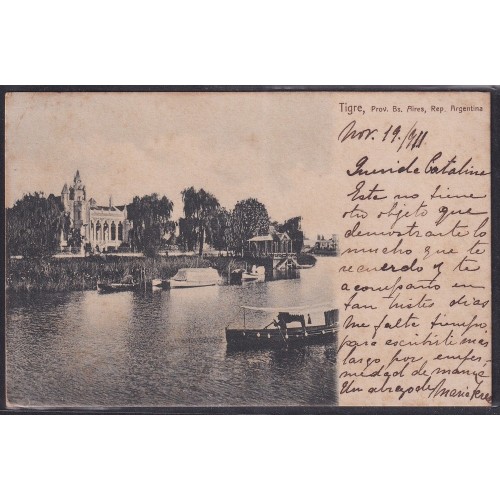 Tigre, Prov. Bs. Aires, Rep. Argentina
Nov. 19/911
Querida Catalina
Esta no tiene
otro objeto que
demostrarte lo
mucho que te
recuerdo y te
acompaño en
tan tristes dias
Me falta tiempo,
para escribirte mas
largo por enfer-
medad de mama
Un abrazo de Maria